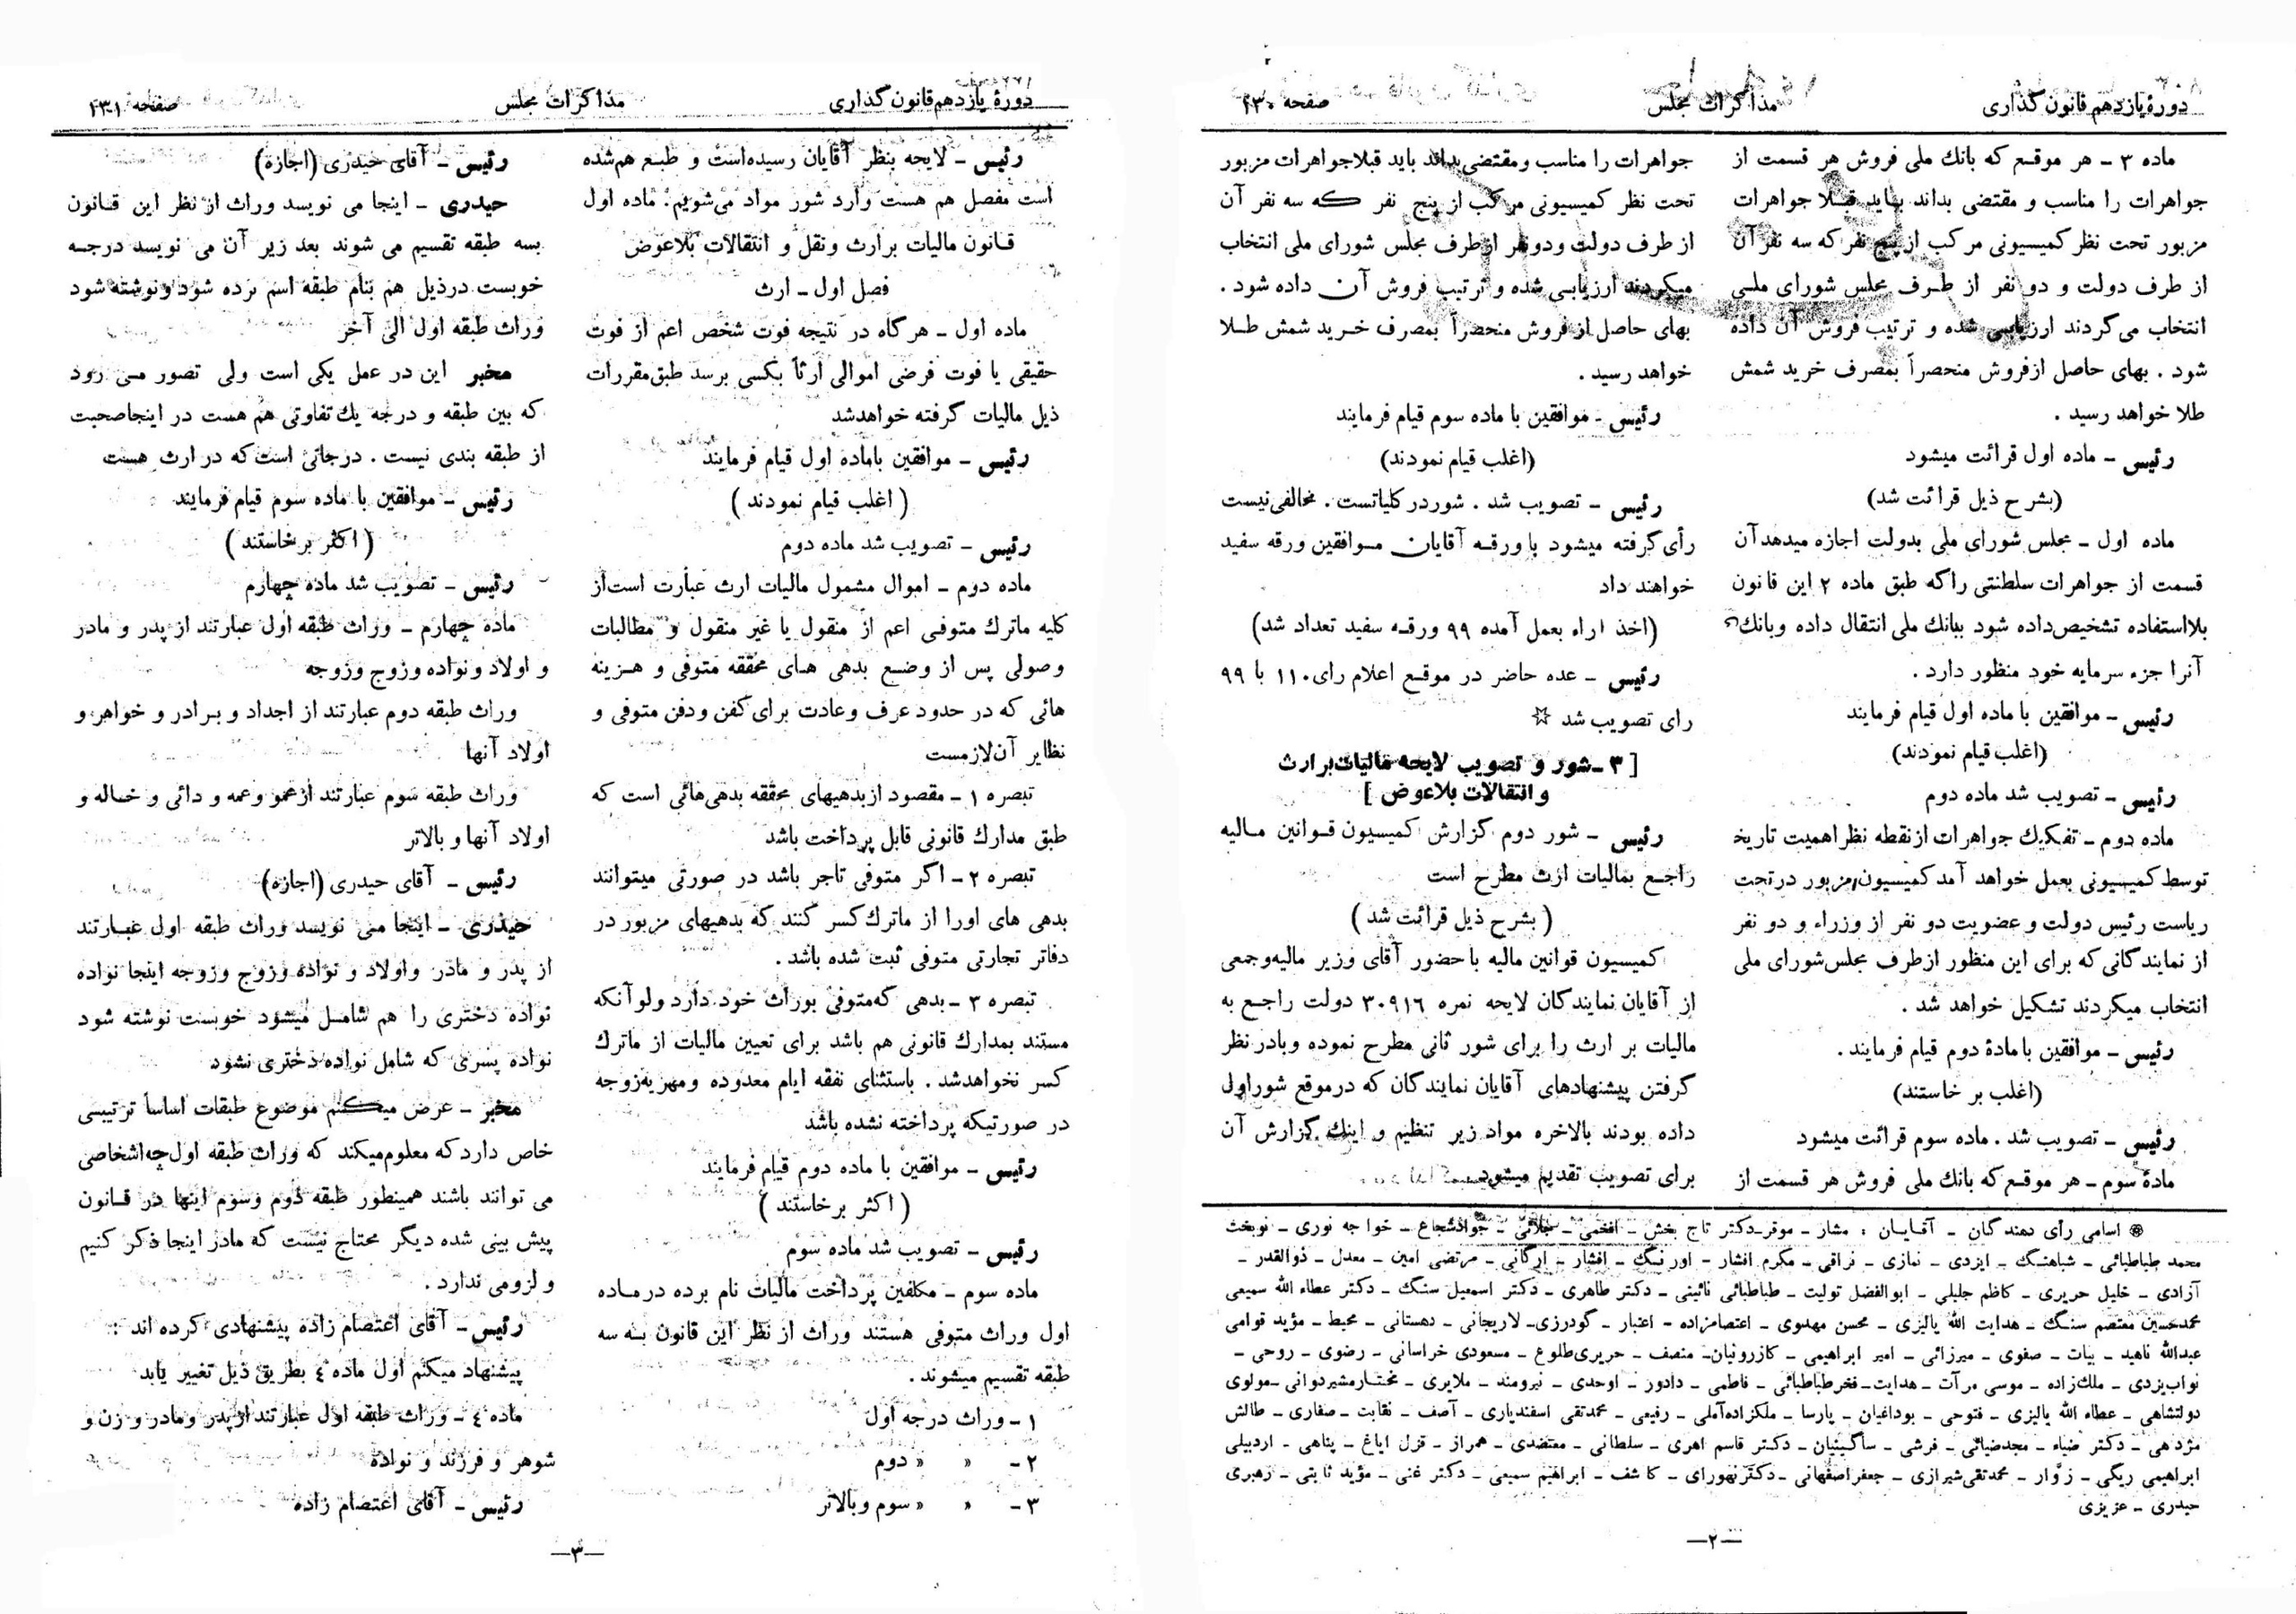 دورهٔ یازدهم قانون گذاری
مذاکرات مجلس
صفحه ۴۳۰
ماده ۳ ـ هر موقع که بانك ملی فروش هر قسمت از
جواهرات را مناسب و مقتضی بداند باید قبلا جواهرات
مزبور تحت نظر کمیسیونی مرکب از پنج نفر که سه نفر آن
از طرف دولت و دو نفر از طرف مجلس شورای ملی
انتخاب می‌گردند ارزیابی شده و ترتیب فروش آن داده
شود . بهای حاصل ازفروش منحصراً بمصرف خرید شمش
طلا خواهد رسید .
رئیس ـ ماده اول قرائت میشود
(بشرح ذیل قرائت شد)
ماده اول ـ مجلس شورای ملی بدولت اجازه میدهد آن
قسمت از جواهرات سلطنتی راکه طبق ماده ۲ این قانون
بلااستفاده تشخیص‌داده شود ببانك ملی انتقال داده وبانك
آنرا جزء سرمایه خود منظور دارد .
رئیس ـ موافقین با ماده اول قیام فرمایند
(اغلب قیام نمودند)
رئیس ـ تصویب شد ماده دوم
ماده دوم ـ تفکیك جواهرات ازنقطه نظر اهمیت تاریخ
توسط کمیسیونی بعمل خواهد آمد کمیسیون مزبور در تحت
ریاست رئیس دولت و عضویت دو نفر از وزراء و دو نفر
از نمایندگانی که برای این منظور ازطرف مجلس‌شورای ملی
انتخاب میکردند تشکیل خواهد شد .
رئیس ـ موافقین با مادهٔ دوم قیام فرمایند .
(اغلب بر خاستند)
رئیس ـ تصویب شد . ماده سوم قرائت میشود
مادهٔ سوم ـ هر موقع که بانك ملی فروش هر قسمت از
جواهرات را مناسب ومقتضی‌بداند باید قبلاجواهرات مزبور
تحت نظر کمیسیونی مرکب از پنج نفر که سه نفر آن
از طرف دولت ودونفر ازطرف مجلس شورای ملی انتخاب
میکردند ارزیابی شده و ترتیب فروش آن داده شود .
بهای حاصل ازفروش منحصراً بمصرف خرید شمش طلا
خواهد رسید .
رئیس ـ موافقین با ماده سوم قیام فرمایند
(اغلب قیام نمودند)
رئیس ـ تصویب شد . شوردرکلیاتست . مخالفی‌نیست
رأی گرفته میشود با ورقه آقایان موافقین ورقه سفید
خواهند داد
(اخذ اراء بعمل آمده ۹۹ ورقه سفید تعداد شد)
رئیس ـ عده حاضر در موقع اعلام رای۱۱۰ با ۹۹
رای تصویب شد ☆
[ ۳ ـ شور و تصویب لایحه مالیات‌بر ارث
و انتقالات بلاعوض ]
رئیس ـ شور دوم گزارش کمیسیون قوانین مالیه
راجع بمالیات ارث مطرح است
( بشرح ذیل قرائت شد )
کمیسیون قوانین مالیه با حضور آقای وزیر مالیه‌وجمعی
از آقایان نمایندکان لایحه نمره ۳۰۹۱۶ دولت راجع به
مالیات بر ارث را برای شور ثانی مطرح نموده وبادر نظر
گرفتن پیشنهادهای آقایان نمایندگان که درموقع شوراول
داده بودند بالاخره مواد زیر تنظیم و اینك گزارش آن
برای تصویب تقدیم میشود
⊛ اسامی رأی دهندگان ـ آقایان : مشار ـ موقر ـ دکتر تاج بخش ـ افخمی ـ جلائی ـ جوادشجاع ـ خواجه نوری ـ نوبخت
محمد طباطبائی ـ شباهنگ ـ ایزدی ـ نمازی ـ نراقی ـ مکرم افشار ـ اورنگ ـ افشار ـ ارگانی ـ مرتضی امین ـ معدل ـ ذوالقدر ـ
آزادی ـ خلیل حریری ـ کاظم جلیلی ـ ابوالفضل تولیت ـ طباطبائی نائینی ـ دکتر طاهری ـ دکتر اسمعیل سنگ ـ دکتر عطاء الله سمیعی
محمدحسین معتصم سنگ ـ هدایت الله پالیزی ـ محسن مهدوی ـ اعتصام‌زاده ـ اعتبار ـ گودرزی ـ لاریجانی ـ دهستانی ـ محیط ـ مؤید قوامی
عبدالله ناهید ـ بیات ـ صفوی ـ میرزائی ـ امیر ابراهیمی ـ کازرونیان ـ منصف ـ حریری‌طلوع ـ مسعودی خراسانی ـ رضوی ـ روحی ـ
نواب‌یزدی ـ ملك‌زاده ـ موسی مرآت ـ هدایت ـ فخرطباطبائی ـ فاطمی ـ دادور ـ اوحدی ـ نیرومند ـ ملایری ـ مختارمشیردوانی ـ مولوی
دولتشاهی ـ عطاء الله پالیزی ـ فتوحی ـ بوداغیان ـ پارسا ـ ملکزاده‌آملی ـ رفیعی ـ محمدتقی اسفندیاری ـ آصف ـ نقابت ـ صفاری ـ طالش
مژدهی ـ دکتر ضیاء ـ مجدضیائی ـ فرشی ـ ساگینیان ـ دکتر قاسم اهری ـ سلطانی ـ معتضدی ـ همراز ـ قزل ایاغ ـ پناهی ـ اردبیلی
ابراهیمی ریگی ـ زوّار ـ محمدتقی‌شیرازی ـ جعفراصفهانی ـ دکترنهورای ـ کاشف ـ ابراهیم سمیعی ـ دکتر غنی ـ مؤید ثابتی ـ رهبری
حیدری ـ عزیزی
ـ۲ـ
دورهٔ یازدهم قانون گذاری
مذاکرات مجلس
صفحه ۴۳۱
رئیس ـ لایحه بنظر آقایان رسیده‌است و طبع هم‌شده
است مفصل هم هست وارد شور مواد می‌شویم . ماده اول
قانون مالیات برارث ونقل و انتقالات بلاعوض
فصل اول ـ ارث
ماده اول ـ هرگاه در نتیجه فوت شخص اعم از فوت
حقیقی یا فوت فرضی اموالی ارثاً بکسی برسد طبق‌مقررات
ذیل مالیات گرفته خواهدشد
رئیس ـ موافقین باماده اول قیام فرمایند
( اغلب قیام نمودند )
رئیس ـ تصویب شد ماده دوم
ماده دوم ـ اموال مشمول مالیات ارث عبارت است‌از
کلیه ماترك متوفی اعم از منقول یا غیر منقول و مطالبات
وصولی پس از وضع بدهی های محققه متوفی و هزینه
هائی که در حدود عرف وعادت برای کفن ودفن متوفی و
نظایر آن‌لازمست
تبصره ۱ ـ مقصود ازبدهیهای محققه بدهی‌هائی است که
طبق مدارك قانونی قابل پرداخت باشد
تبصره ۲ ـ اگر متوفی تاجر باشد در صورتی میتوانند
بدهی های اورا از ماترك کسر کنند که بدهیهای مزبور در
دفاتر تجارتی متوفی ثبت شده باشد .
تبصره ۳ ـ بدهی که‌متوفی بوراث خود دارد ولوآنکه
مستند بمدارك قانونی هم باشد برای تعیین مالیات از ماترك
کسر نخواهدشد . باستثنای نفقه ایام معدوده ومهریه‌زوجه
در صورتیکه پرداخته نشده باشد
رئیس ـ موافقین با ماده دوم قیام فرمایند
( اکثر برخاستند )
رئیس ـ تصویب شد ماده سوم
ماده سوم ـ مکلفین پرداخت مالیات نام برده درماده
اول وراث متوفی هستند وراث از نظر این قانون به سه
طبقه تقسیم میشوند .
۱ ـ وراث درجه اول
۲ ـ » » دوم
۳ ـ » » سوم وبالاتر
رئیس ـ آقای حیدری (اجازه)
حیدری ـ اینجا می نویسد وراث از نظر این قانون
بسه طبقه تقسیم می شوند بعد زیر آن می نویسد درجه
خوبست درذیل هم بنام طبقه اسم برده شود ونوشته شود
وراث طبقه اول الی آخر
مخبر این در عمل یکی است ولی تصور می رود
که بین طبقه و درجه یك تفاوتی هم هست در اینجاصحبت
از طبقه بندی نیست . درجاتی است‌که در ارث هست
رئیس ـ موافقین با ماده سوم قیام فرمایند
( اکثر برخاستند )
رئیس ـ تصویب شد ماده چهارم
ماده چهارم ـ وراث طبقه اول عبارتند از پدر و مادر
و اولاد ونواده وزوج وزوجه
وراث طبقه دوم عبارتند از اجداد و برادر و خواهر و
اولاد آنها
وراث طبقه سوم عبارتند ازعمو وعمه و دائی و خاله و
اولاد آنها و بالاتر
رئیس ـ آقای حیدری (اجازه)
حیدری ـ اینجا می نویسد وراث طبقه اول عبارتند
از پدر و مادر واولاد و نواده وزوج وزوجه اینجا نواده
نواده دختری را هم شامل میشود خوبست نوشته شود
نواده پسری که شامل نواده دختری نشود
مخبر ـ عرض میکنم موضوع طبقات اساساً ترتیبی
خاص داردکه معلوم‌میکند که وراث طبقه اول‌چه‌اشخاصی
می توانند باشند همینطور طبقه دوم وسوم اینها در قانون
پیش بینی شده دیگر محتاج نیست که مادر اینجا ذکر کنیم
و لزومی ندارد .
رئیس ـ آقای اعتصام زاده پیشنهادی کرده اند :
پیشنهاد میکنم اول ماده ٤ بطریق ذیل تغییر یابد
ماده ٤ ـ وراث طبقه اول عبارتند ازپدر ومادر و زن و
شوهر و فرزند و نواده
رئیس ـ آقای اعتصام زاده
ـ۳ـ